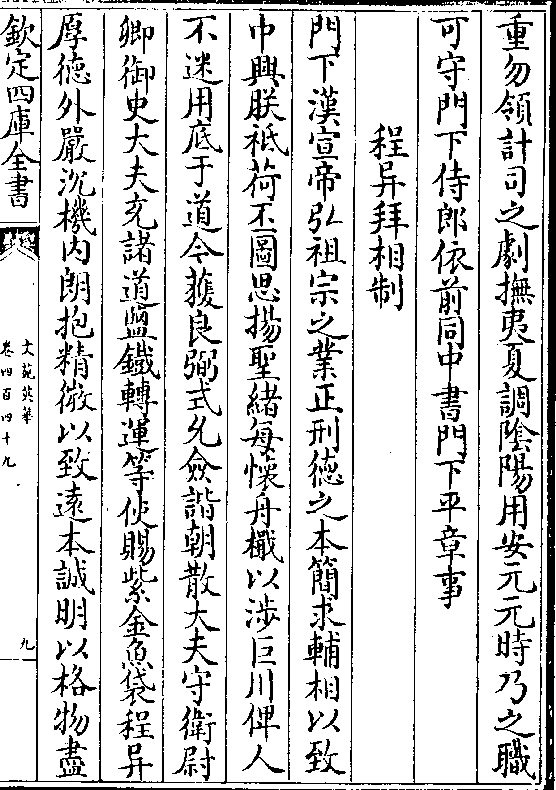 重勿領計司之劇撫夷夏調陰陽用安元元時乃之職
可守門下侍郎依前同中書門下平章事
程异拜相制
門下漢宣帝弘祖宗之業正刑德之本簡求輔相以致
中興朕祇荷丕圖思揚聖緒每懷舟檝以涉巨川俾人
不迷用底于道今獲良弼式允僉諧朝散大夫守衛尉
卿御史大夫充諸道鹽鐵轉運等使賜紫金魚袋程异
厚德外嚴沉機內朗抱精微以致遠本誠明以格物盡
欽定四庫全書
文苑英華
卷四百四十九
九